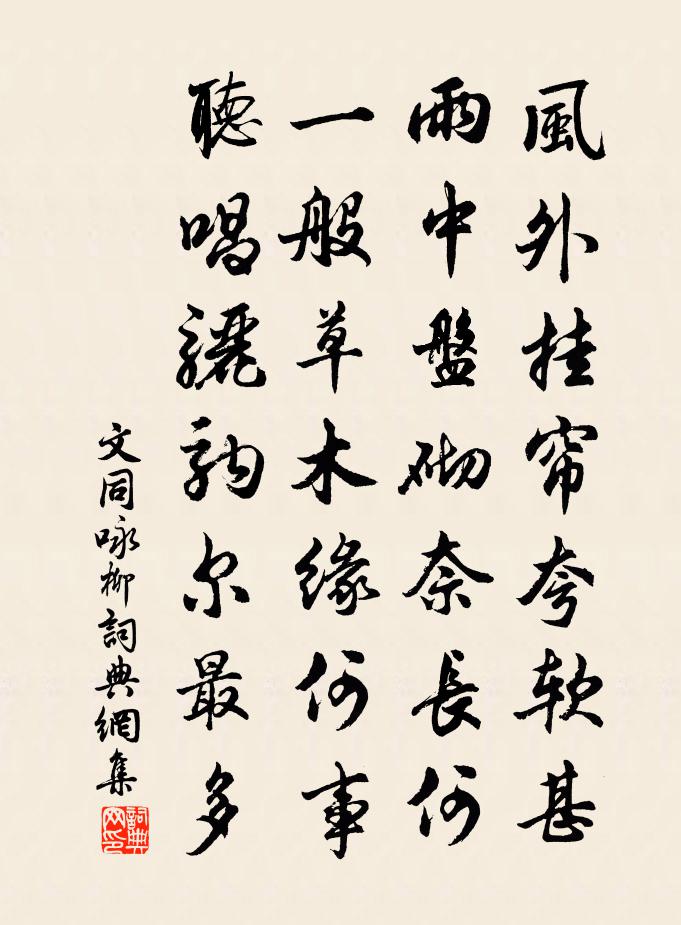 風外挂帘夸軟甚
雨中盤砌奈長何
一般草木緣何事
聽唱驪駒尔最多
文同咏柳詞典網集
詞典網印